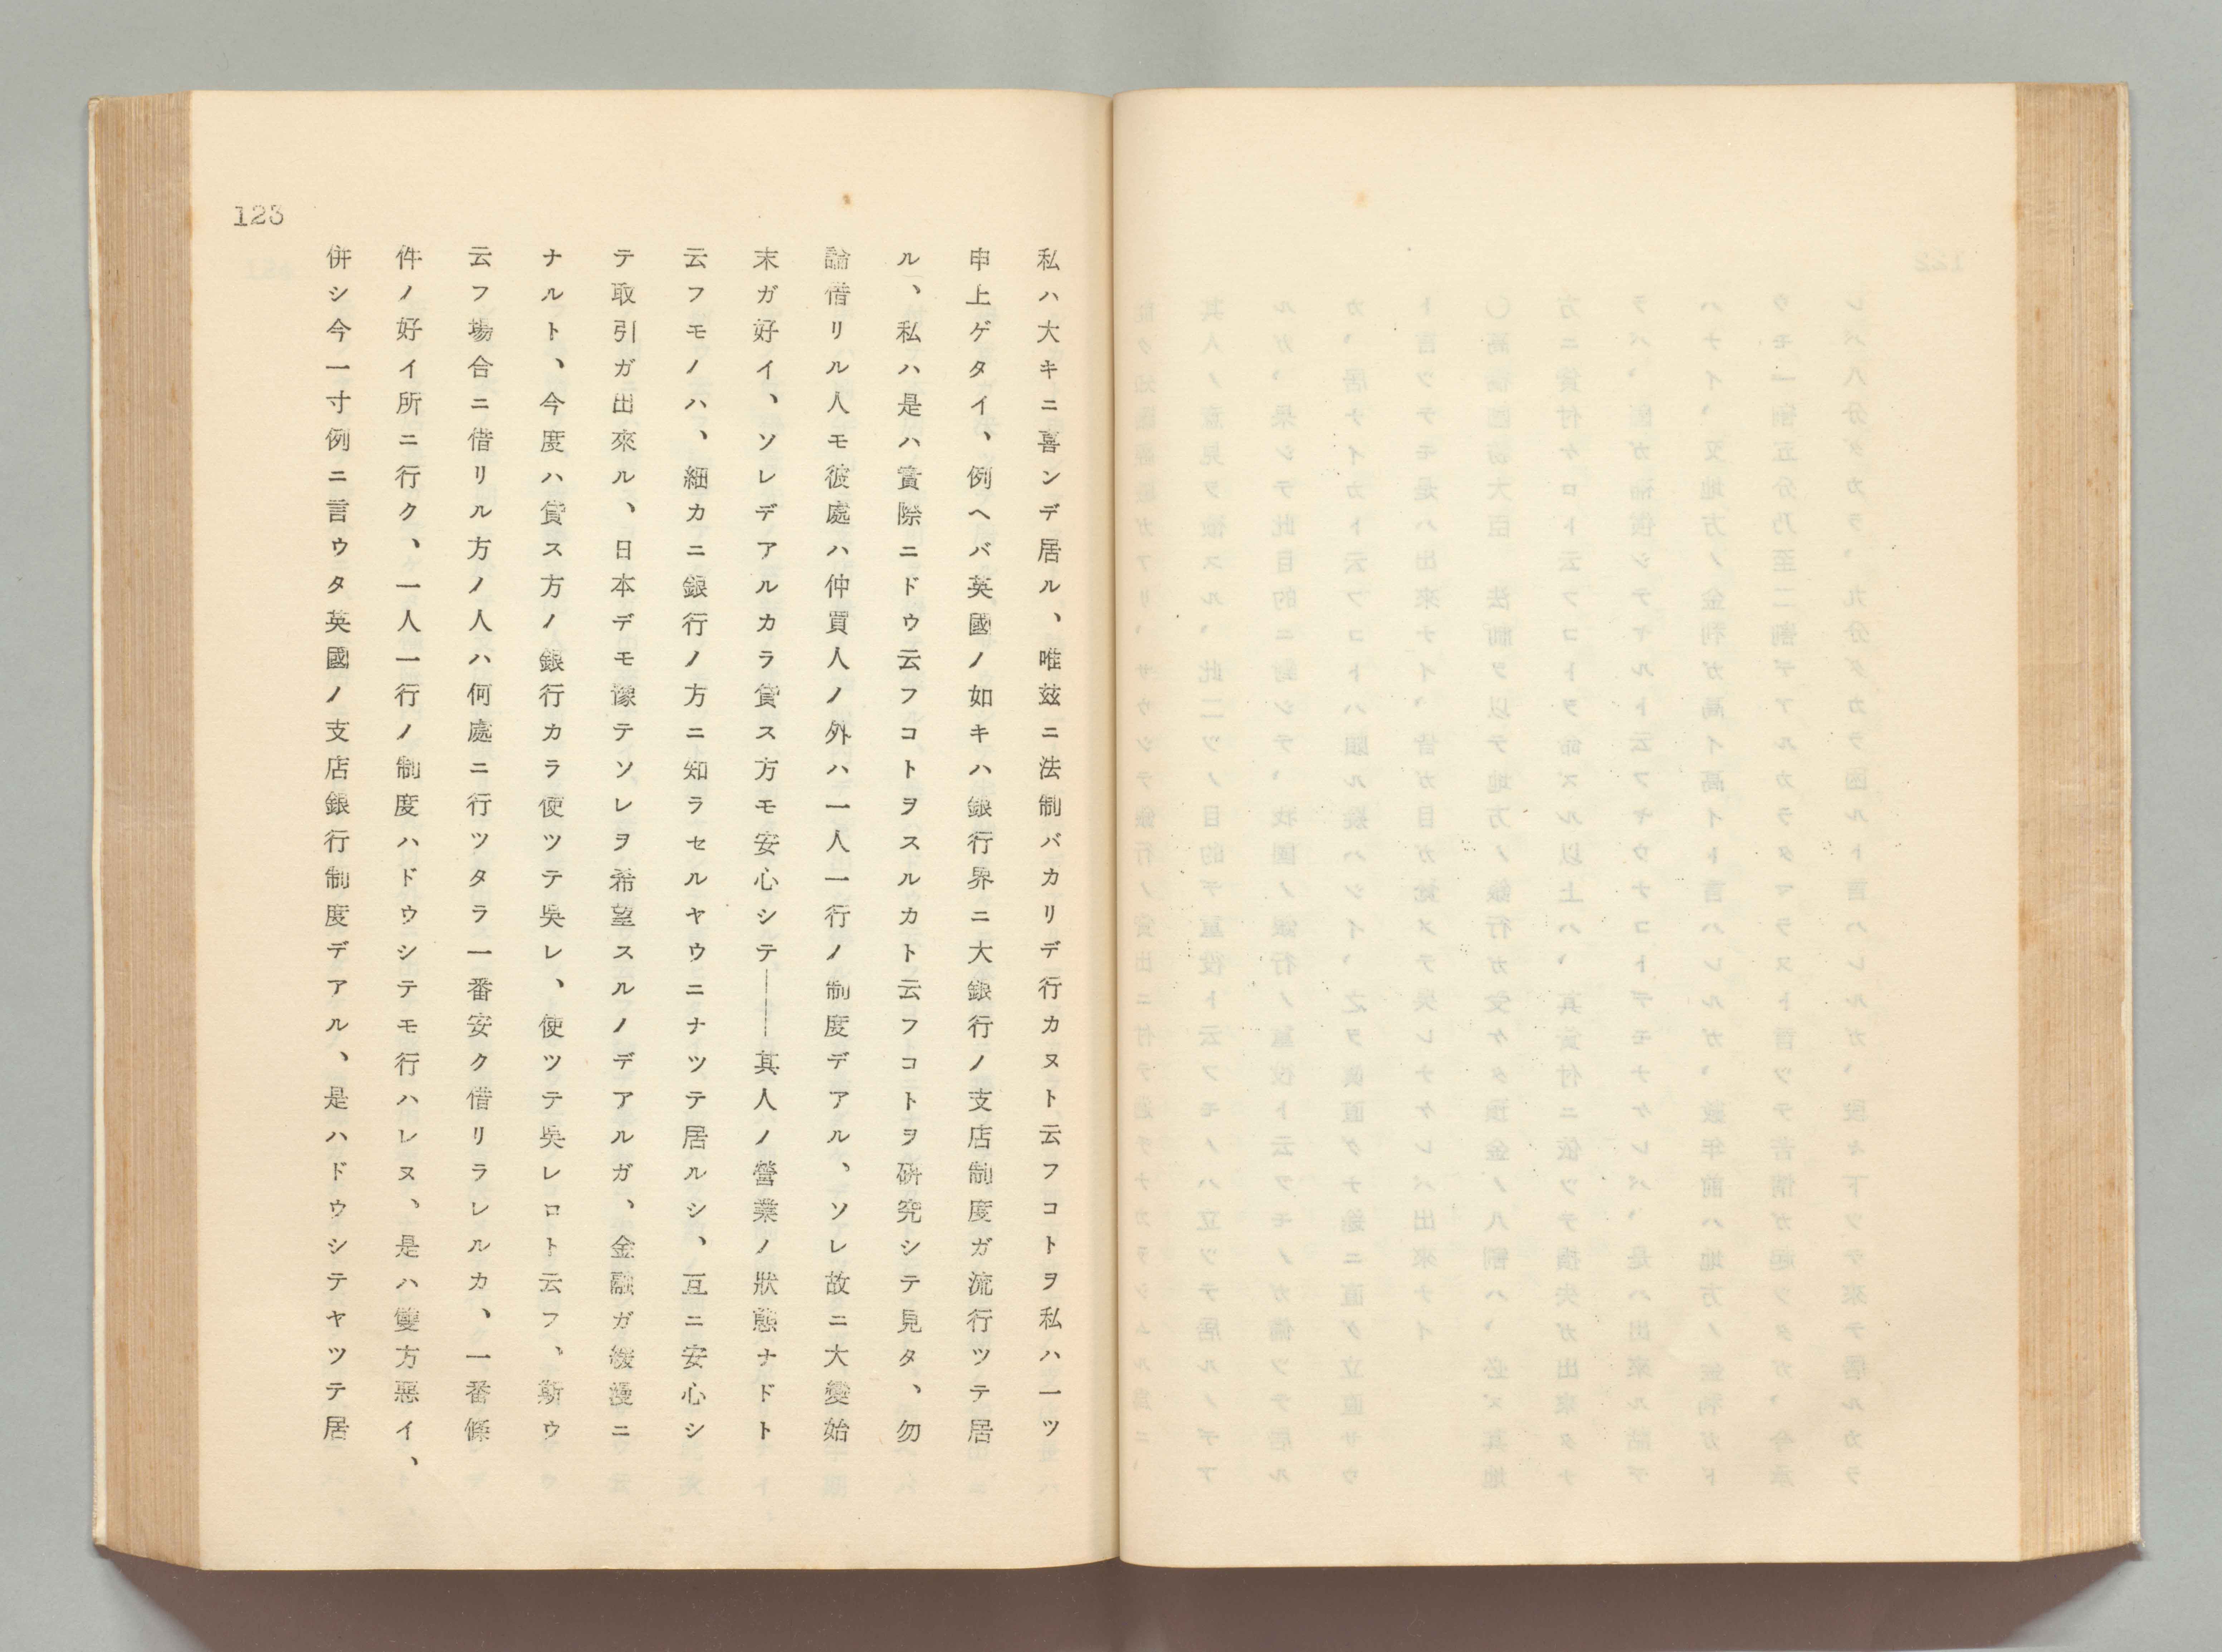 123
私ハ大キニ喜ンデ居ル、唯玆ニ法制バカリデ行カヌト云フコトヲ私ハ一ツ
申上ゲタイ、例ヘバ英國ノ如キハ銀行界ニ大銀行ノ支店制度ガ流行ツテ居
ル、私ハ是ハ實際ニドウ云フコトヲスルカト云フコトヲ硏究シテ見タ、勿
論借リル人モ彼處ハ仲買人ノ外ハ一人一行ノ制度デアル、ソレ故ニ大變始
末ガ好イ、ソレデアルカラ貸ス方モ安心シテ――其人ノ營業ノ狀態ナドト
云フモノハ、細カニ銀行ノ方ニ知ラセルヤウニナツテ居ルシ、互ニ安心シ
テ取引ガ出來ル、日本デモ豫テソレヲ希望スルノデアルガ、金融ガ緩漫ニ
ナルト、今度ハ貸ス方ノ銀行カラ使ツテ吳レ、使ツテ吳レロト云フ、斯ウ
云フ場合ニ借リル方ノ人ハ何處ニ行ツタラ一番安ク借リラレルカ、一番條
件ノ好イ所ニ行ク、一人一行ノ制度ハドウシテモ行ハレヌ、是ハ雙方惡イ、
併シ今一寸例ニ言ウタ英國ノ支店銀行制度デアル、是ハドウシテヤツテ居